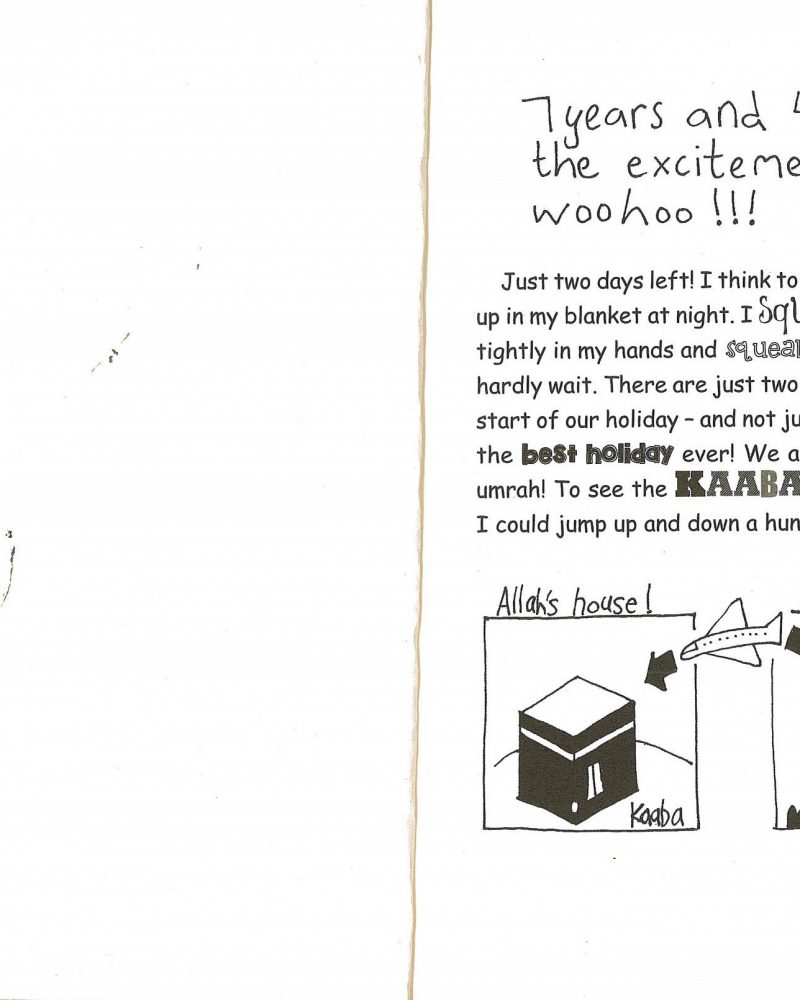 7 years and
the
woohoo !!!
Just two days left! I think to
up in my blanket at night. I
tightly in my hands and
hardly wait. There are just two
start of our holiday – and not
the best holiday ever! We
umrah! To see the KAABA
I could jump up and down a
Allah's house!
Kaaba